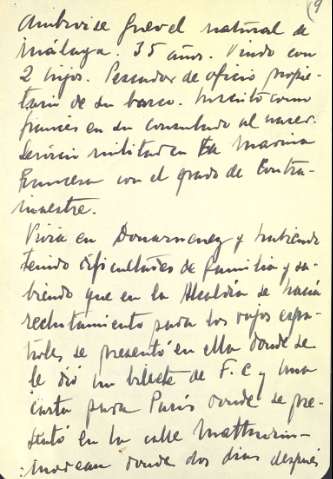 (9
Ambroise Quevel natural de
Málaga. 35 años. Viudo con
2 hijos. Pescador de oficio propie-
tario de su barco. Inscrito como
francés en su consulado al nacer.
Servicio militar en la marina
francesa con el grado de Contra-
maestre.
Vivía en Douarnenez y habiendo
tenido dificultades de familia y sa-
biendo que en la Alcaldía se hacía
reclutamiento para los rojos espa-
ñoles se presentó en ella donde se
le dió un billete de F.C y una
carta para París donde se pre-
sentó en la calle Mathurin-
-Moreau donde dos días después